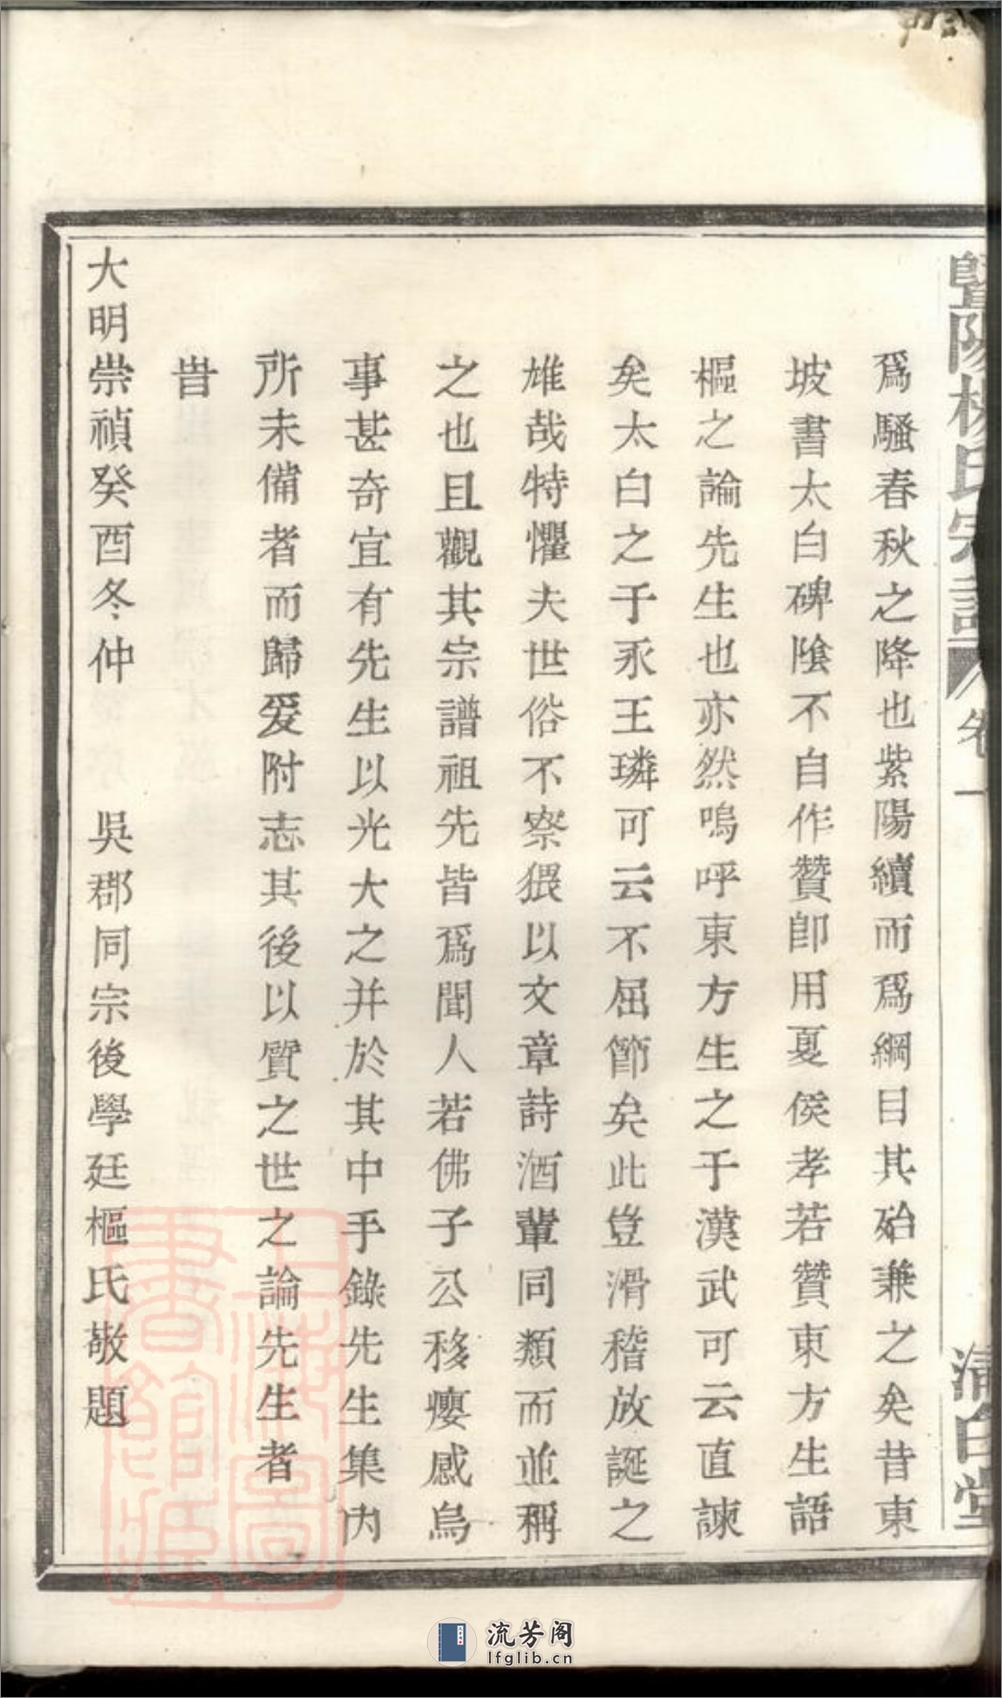 暨陽楊氏宗譜 卷一 清白堂
爲騷春秋之降也紫陽續而爲綱目其殆兼之矣昔東
坡書太白碑陰不自作贊卽用夏侯孝若贊東方生語
樞之論先生也亦然嗚呼東方生之于漢武可云直諫
矣太白之于永王璘可云不屈節矣此豈滑稽放誕之
雄哉特懼夫世俗不察猥以文章詩酒輩同類而並稱
之也且觀其宗譜祖先皆爲聞人若佛子公移癭感烏
事甚奇宜有先生以光大之并於其中手錄先生集內
所未備者而歸爰附志其後以質之世之論先生者
旹
大明崇禎癸酉冬仲 吳郡同宗後學廷樞氏敬題
上海圖書館藏
流芳阁
lfglib.cn